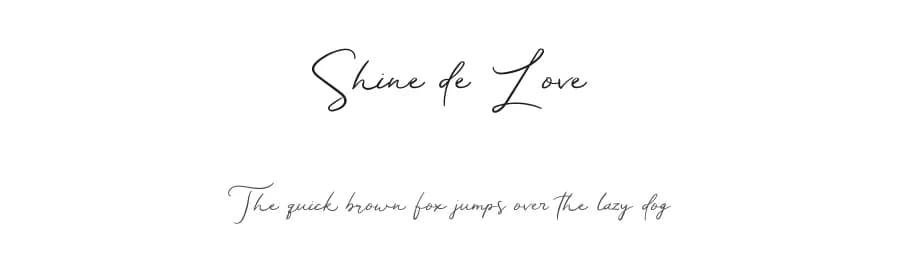 Shine de Love
The quick brown fox jumps over the lazy dog